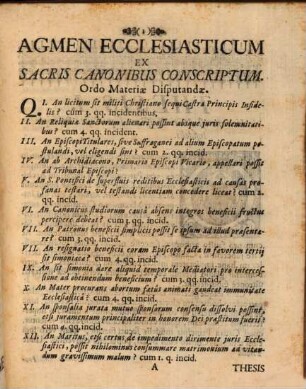 AGMEN ECCLESIASTICUM
EX
SACRIS CANONIBUS CONSCRIPTUM.
Ordo Materiæ Disputandæ.
Q. I. An licitum sit militi Christiano sequi Castra Principis Infide-
lis? cum 3. qq. incidentibus.
II. An Reliquiæ Sanctorum alienari possint absque juris solemnitati-
bus? cum 4. qq. incident.
III. An Episcopi Titulares, sive Suffraganei ad alium Episcopatum po-
stulandi, vel eligendi sint? cum 2. qq. incid.
IV. An ab Archidiacono, Primario Episcopi Vicario, appellari possit
ad Tribunal Episcopi?
V. An S. Pontifici de superfluis reditibus Ecclesiasticis ad causas pro-
fanas testari, vel testandi licentiam concedere liceat? cum 2.
qq. incid.
VI. An Canonicus studiorum causâ absens integros beneficii fructus
percipere debeat? cum 3. qq. incid.
VII. An Patronus beneficii simplicis possit se ipsum ad illud præsenta-
re? cum 3. qq. incid.
VIII. An resignatio beneficii coram Episcopo facta in favorem tertii
sit simoniaca? cum 4. qq. incid.
IX. An sit simonia dare aliquid temporale Mediatori, pro interces-
sione ad obtinendum beneficium? cum 3. qq. incid.
X. An Mater procurans abortum fœtûs animati gaudeat immunitate
Ecclesiastica? cum 4. qq. incid.
XI. An sponsalia jurata mutuo sponsorum consensu dissolvi possint,
etsi juramentum principaliter in honorem Dei præstitum fuerit?
cum 2. qq. incid.
XII. An Maritus, etsi certus de impedimento dirimente juris Eccle-
siastici, possit nihilominus consummare matrimonium ad vitan-
dum gravissimum malum? cum 1. q. incid.
A THESIS